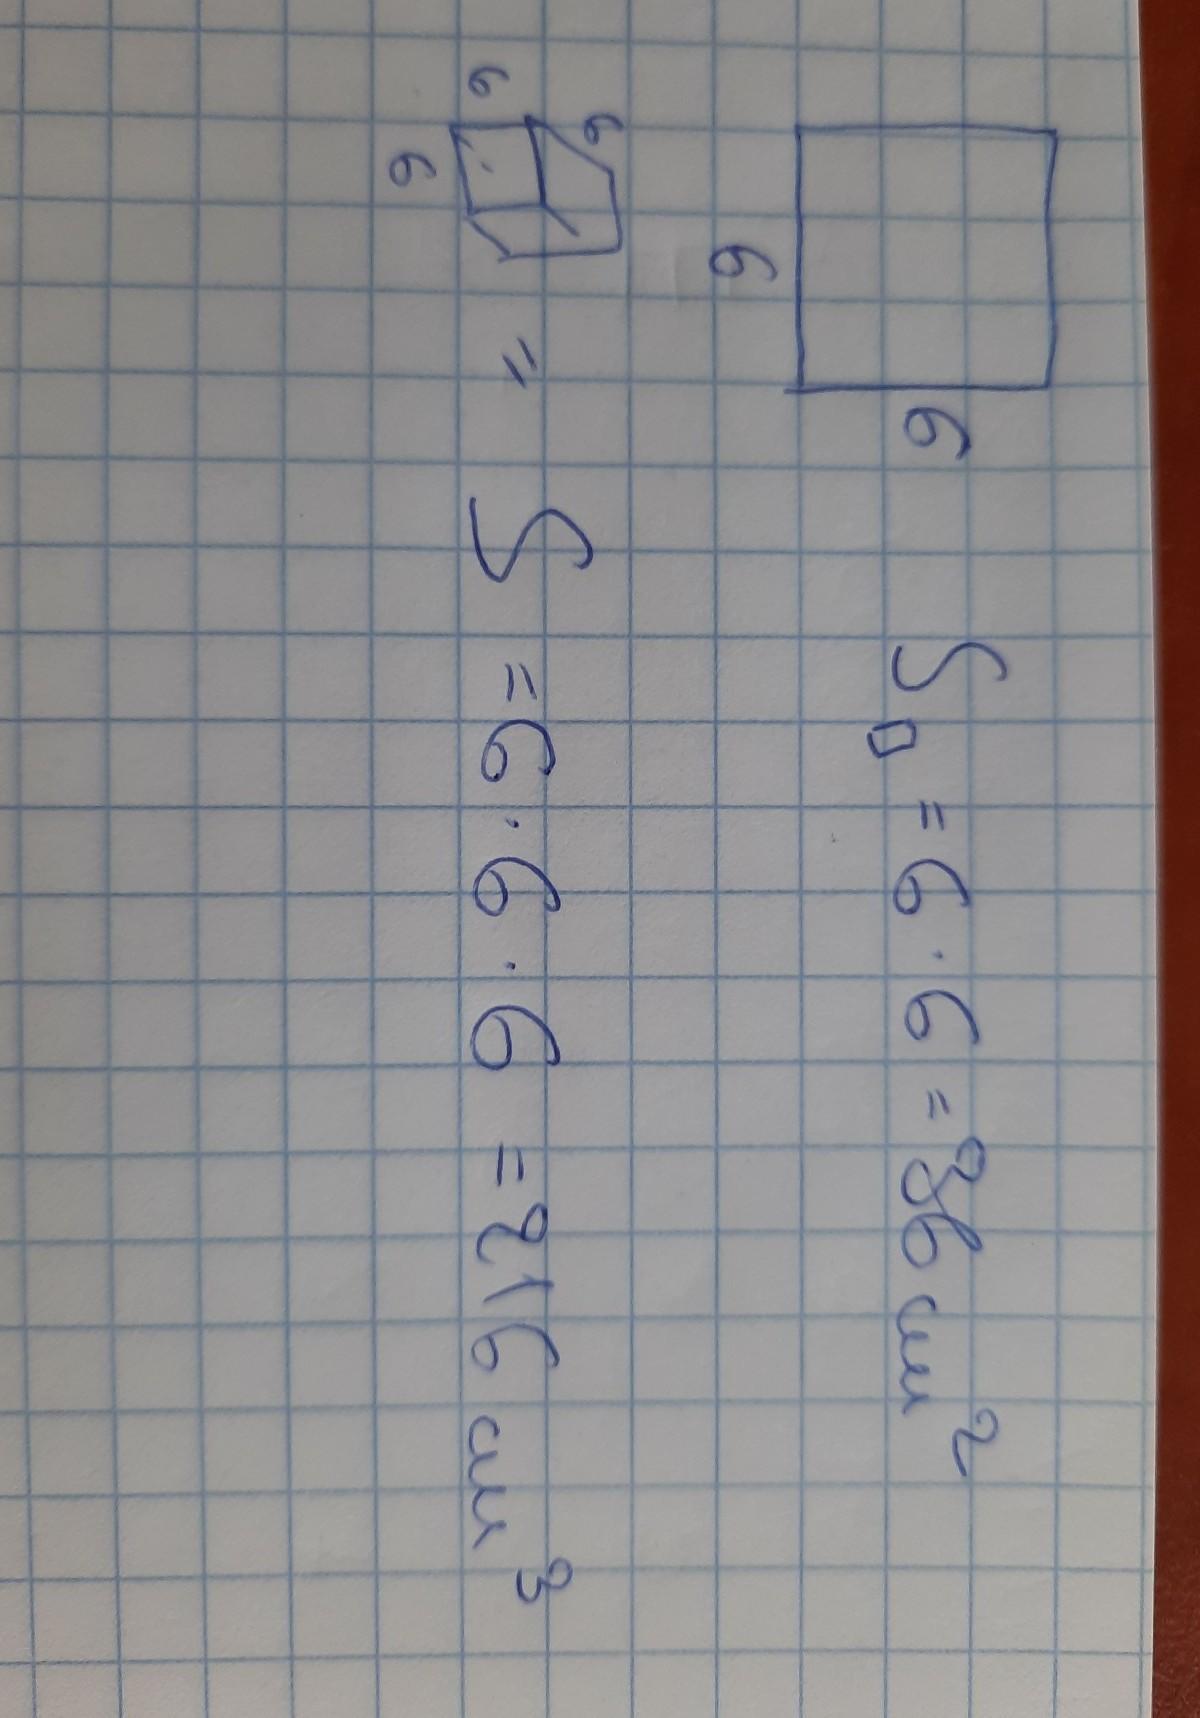 6
6
S□ = 6 · 6 = 36 см²
6
6
6
= S = 6 · 6 · 6 = 216 см³